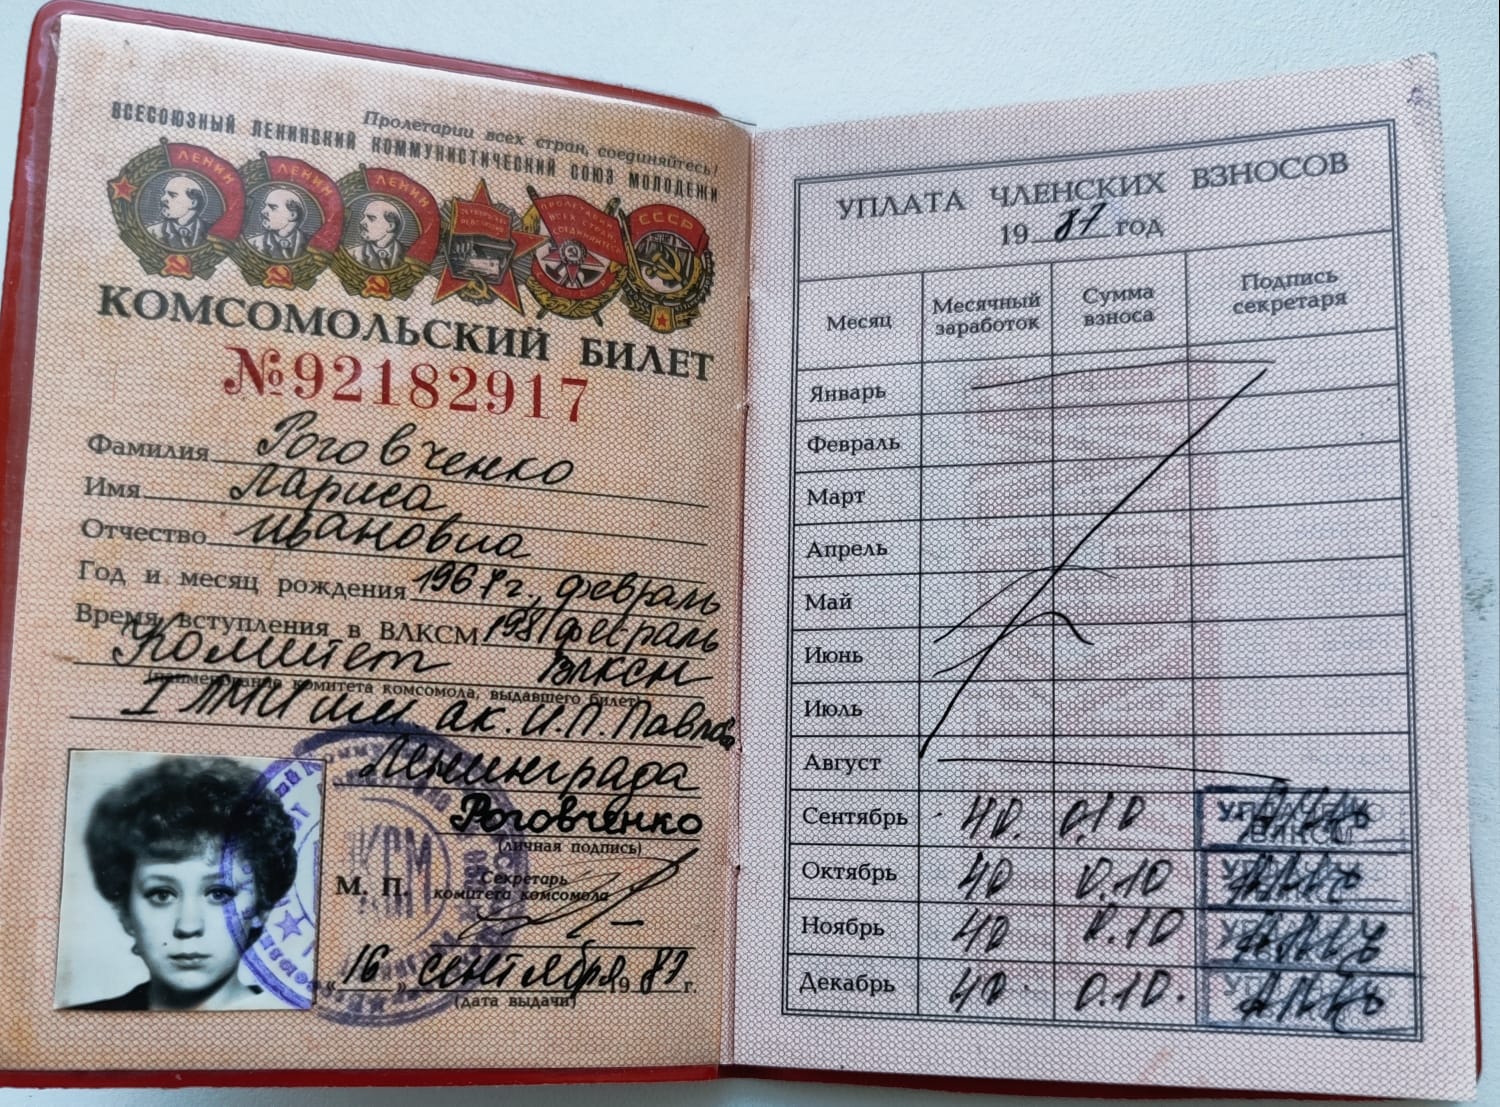 Пролетарии всех стран, соединяйтесь!
ВСЕСОЮЗНЫЙ ЛЕНИНСКИЙ КОММУНИСТИЧЕСКИЙ СОЮЗ МОЛОДЕЖИ
ЛЕНИН ЛЕНИН ЛЕНИН ОКТЯБРЬСКАЯ РЕВОЛЮЦИЯ ПРОЛЕТАРИИ ВСЕХ СТРАН СОЕДИНЯЙТЕСЬ СССР
КОМСОМОЛЬСКИЙ БИЛЕТ
№92182917
Фамилия Роговченко
Имя Лариса
Отчество Ивановна
Год и месяц рождения 1967г., февраль
Время вступления в ВЛКСМ 1981 февраль
Комитет ВЛКСМ
(наименование комитета комсомола, выдавшего билет)
I ЛМИ им ак. И.П. Павлова
Ленинграда
Роговченко
(личная подпись)
М. П.
Секретарь
комитета комсомола
"16" сентября 1987 г.
(дата выдачи)
ВЛКСМ
УПЛАТА ЧЛЕНСКИХ ВЗНОСОВ
1987 год
Месяц Месячный заработок Сумма взноса Подпись секретаря
Январь
Февраль
Март
Апрель
Май
Июнь
Июль
Август
Сентябрь 40. 0.10
Октябрь 40 0.10
Ноябрь 40 0.10
Декабрь 40. 0.10.